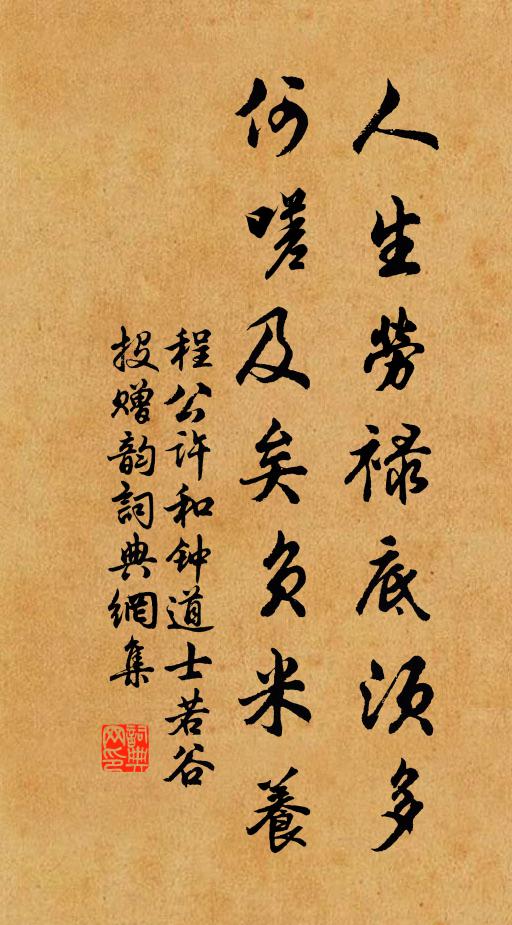 人生劳禄底须多
何嗟及矣负米養
程公许和钟道士若谷
投赠韵詞典網集
詞典网印